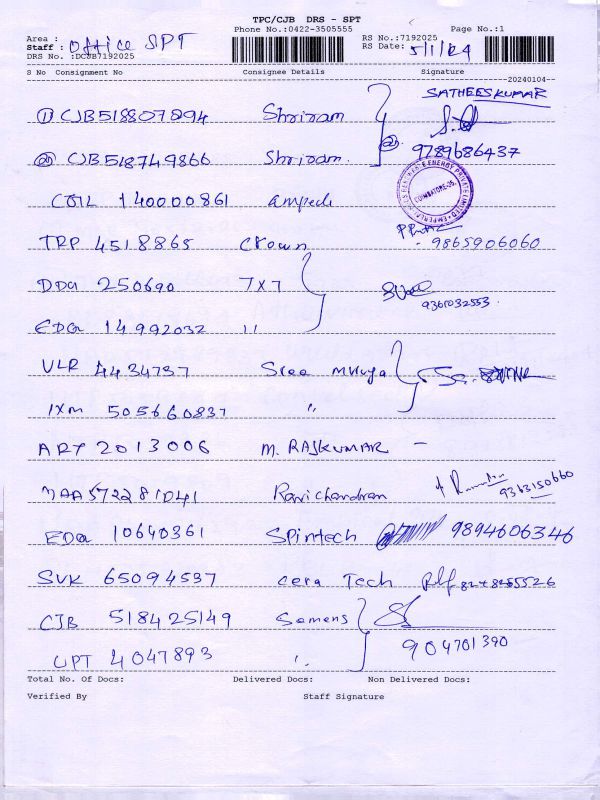 TPC/CJB DRS - SPT
Area : Phone No.:0422-3505555 RS No.:7192025 Page No.:1
Staff : Office SPT RS Date: 5/1/24
DRS No. :DCJB7192025
S No Consignment No Consignee Details Signature
20240104
SATHEESKUMAR
① CJB518807894 Shriram
② CJB518749866 Shriram ② 9789686437
COIL 140000861 ampede
COIMBATORE-05.
TRP 4518865 Crown 9865906060
DDG 250690 7x7
9361032553
EDG 14992032 11
VLR 4434737 Sree Muruga
IXM 505660837 "
ART 2013006 M. RAJKUMAR -
MAA572281041 Ravichandran 9363150660
EDG 10640361 SPintech 9894606346
SVK 65094537 cera Tech
CJB 518425149 Semens
UPT 4047893 " 904701390
Total No. Of Docs: Delivered Docs: Non Delivered Docs:
Verified By Staff Signature